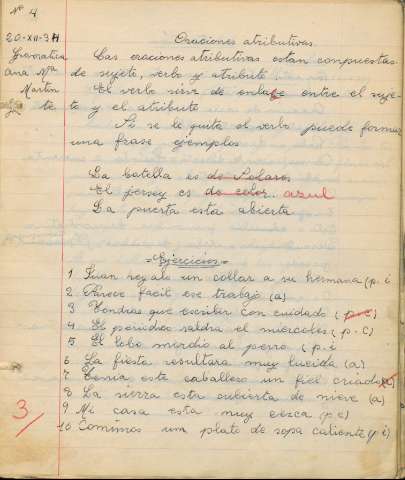 Nº 4
20-XII-9
Gramatica
Ana Mª
Martin
Oraciones atributivas.
Las oraciones atributivas estan compuestas
de sujeto, verbo y atributo
El verbo sirve de enlace entre el suje-
to y el atributo
Si se le quita el verbo puede formar
una frase ejemplos
La botella es de Polaros
El jersey es de color. azul
La puerta esta abierta
=Ejercicios=
1 Juan regalo un collar a su hermana (p. i
2 Parece facil ese trabajo (a)
3 Tendras que escribir con cuidado (p-c)
4 El periodico saldra el miercoles (p-c)
5 El lobo mordio al perro (p. i
6 La fiesta resultara muy lucida (a)
7 Tenia este caballero un fiel criado (a)
8 La sierra esta cubierta de nieve (a)
9 Mi casa esta muy cerca (p c)
10 Comimos un plato de sopa caliente (p i)
3